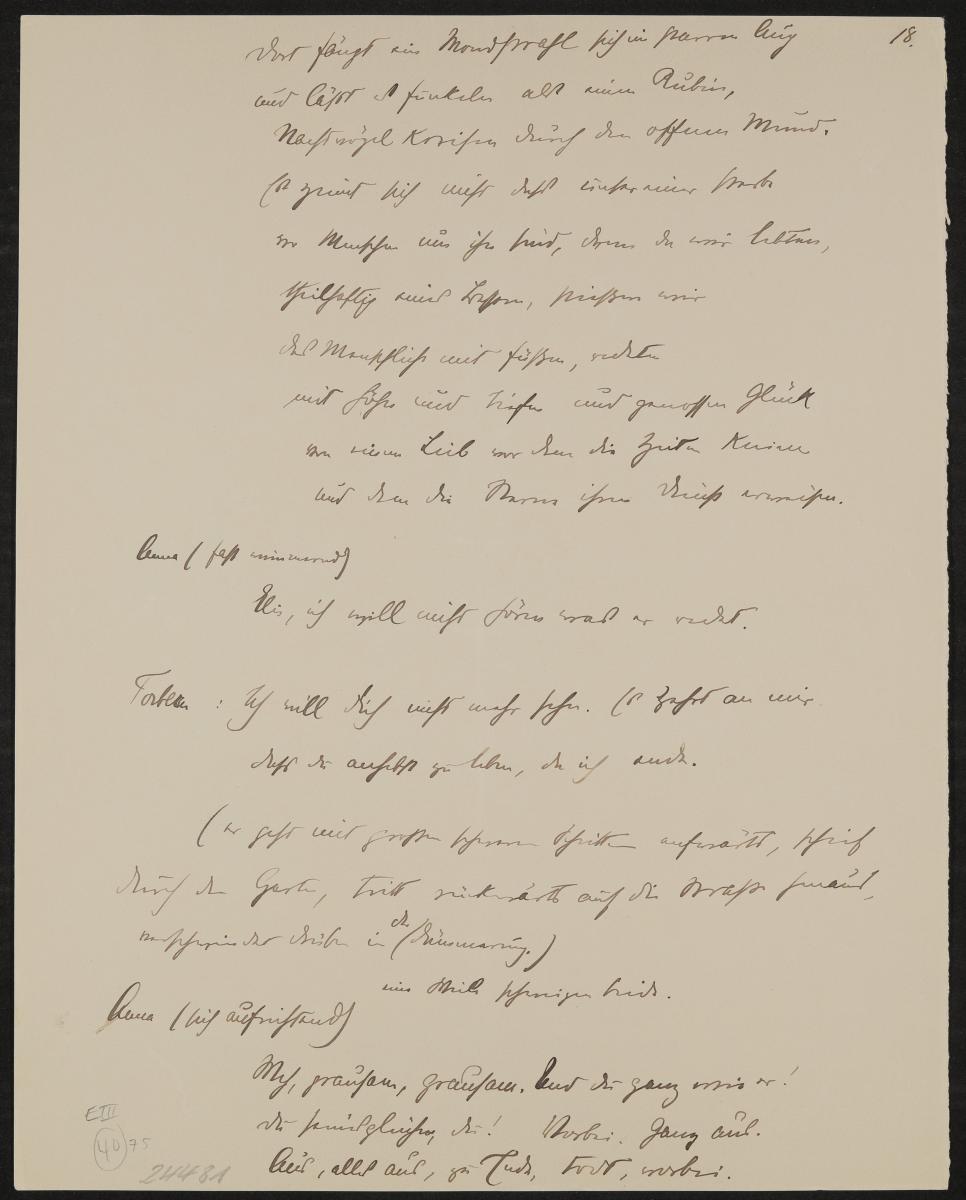 18.
Dort fängt ein Mondstrahl sich im starren Aug
und läßt es funkeln als einen Rubin,
Nachtvögel kreisen durch den offnen Mund.
Es ziemt sich nicht dass unsereiner sterbe
wo Menschen um ihn sind, denn da wir lebten,
theilhaftig eines Bessern, stießen wir
das Menschliche mit Füßen, redeten
mit Höhen und Tiefen und genossen Glück
von einem Leib vor dem die Zeiten knieen
und dem die Sterne ihren Dienst erweisen.
Anna (fast wimmernd)
Elis, ich will nicht hören was er redet.
Torbern : Ich will dich nicht mehr sehn. Es zehrt an mir
dass du anhebst zu leben, da ich ende.
(er geht mit grossen schweren Schritten aufwärts, schief
durch den Garten, tritt rückwärts auf die Strasse hinaus,
verschwindet drüben in der Dämmerung.)
eine Weile schweigen beide.
Anna (sich aufrichtend)
Weh, grausam, grausam. Und du ganz wie er!
du seinesgleichen, du! Vorbei. Ganz aus.
Aus, alles aus, zu Ende, todt, vorbei.
E III
40 75
24481